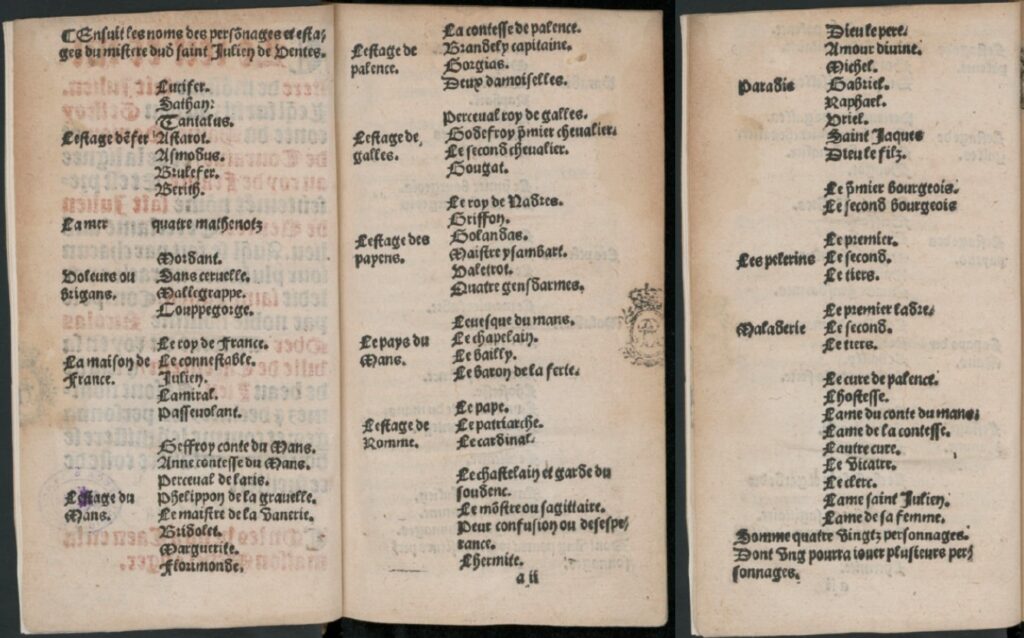 ❡Ensuit les noms des persõnages et esta-
ges du mistere duõ saint Julien de Ventes.
Lucifer.
Sathan:
Tantalus.
Lestage dẽfer Astarot.
Asmodus.
Brulefer.
Berith.
La mer quatre mathenotz
Mordant.
Voleurs ou Sans ceruelle.
brigans. Mallegrappe.
Couppegorge.
Le roy de France.
La maison de Le connestable.
France. Julien.
Lamiral.
Passeuolant.
Geffroy conte du Mans.
Anne contesse du Mans.
Perceual de laris.
Lestage du Phelippon de la grauelle.
Mans. Le maistre de la vanerie.
Bridolet.
Marguerite.
Florimonde.
La contesse de palence.
Lestage de Brandely capitaine.
palence. Gorgias.
Deux damoiselles.
Perceual roy de galles.
Lestage de Godefroy p̃mier cheualier.
galles. Le second cheualier.
Gougat.
Le roy de Nadres.
Griffon.
Lestage des Golandas.
payens. Maistre ysambart.
Valetrot.
Quatre gensdarmes.
Leuesque du mans.
Le pays du Le chapelain.
Mans. Le bailly.
Le baron de la ferte.
Le pape.
Lestage de Le patriarche.
Romme. Le cardinal.
Le chastelain et garde du
soudenc.
Le mõstre ou sagittaire.
Peur confusion ou desespe-
rance.
Lhermite.
a ii
Dieu le pere.
Amour diuine.
Michel.
Paradis Gabriel.
Raphael.
Vriel.
Saint Jaques
Dieu le filz.
Le p̃mier bourgeois.
Le second bourgeois
Le premier.
Les pelerins Le second.
Le tiers.
Le premier ladre.
Maladerie Le second.
Le tiers.
Le cure de palence.
Lhostesse.
Lame du conte du mans.
Lame de la contesse.
Lautre cure.
Le vicaire.
Le clerc.
Lame saint Julien.
Lame de sa femme.
Somme quatre vingtz personnages.
Dont vng pourra iouer plusieurs per-
sonnages.